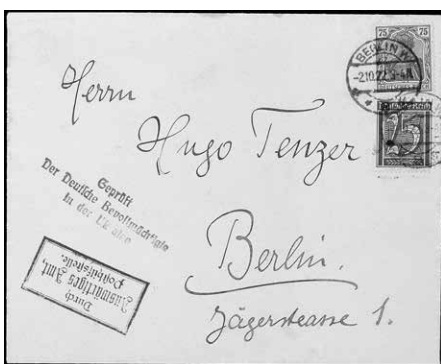 75 75
BERLIN W
-2.10.22.3-4N.
Deutsches Reich
75
Herrn
Hugo Tenzer
Berlin.
Jägerstrasse 1.
Geprüft
Der Deutsche Bevollmächtigte
in der Ukraine
Durch
Auswärtiges Amt,